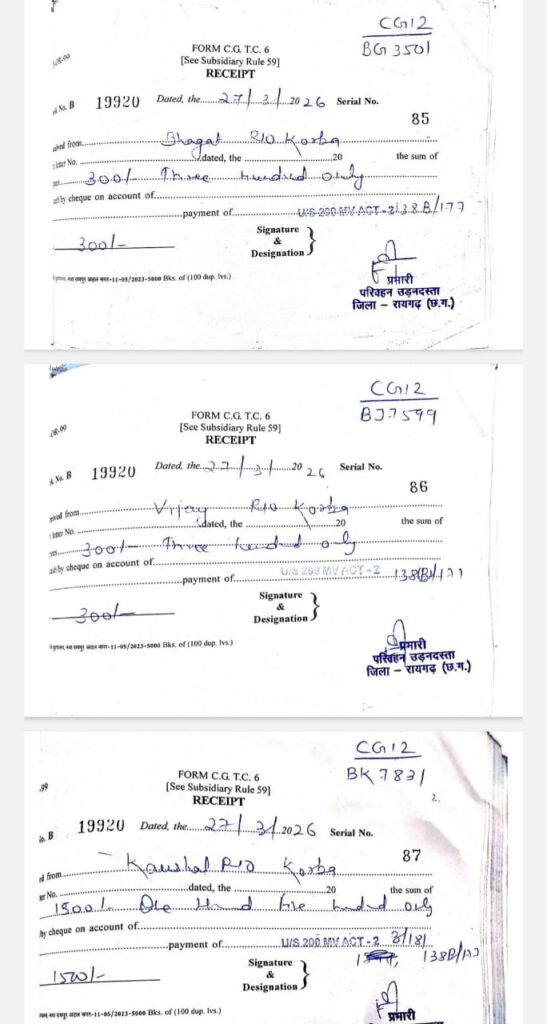 CG12
BG 3501
FORM C.G. T.C. 6
[See Subsidiary Rule 59]
RECEIPT
No. B 19920 Dated, the 27/3/2026 Serial No.
85
from Bhagat R/O Korba
No. dated, the 20 the sum of
300/- Three hundred only
by cheque on account of
payment of U/S 200 MV ACT-2/138B/177
Signature
&
Designation
300/-
11-05/2023-5000 Bks. of (100 dup. lvs.)
प्रभारी
परिवहन उड़नदस्ता
जिला – रायगढ़ (छ.ग.)
CG12
BJ7599
FORM C.G. T.C. 6
[See Subsidiary Rule 59]
RECEIPT
No. B 19920 Dated, the 27/3/2026 Serial No.
86
from Vijay R/O Korba
No. dated, the 20 the sum of
300/- Three hundred only
by cheque on account of
payment of U/S 200 MV ACT-2 138(B)/177
Signature
&
Designation
300/-
11-05/2023-5000 Bks. of (100 dup. lvs.)
प्रभारी
परिवहन उड़नदस्ता
जिला – रायगढ़ (छ.ग.)
CG12
BK 7831
2.
FORM C.G. T.C. 6
[See Subsidiary Rule 59]
RECEIPT
B 19920 Dated, the 27/3/2026 Serial No.
87
from Kaushal R/O Korba
No. dated, the 20 the sum of
1500/- five only
by cheque on account of
payment of U/S 200 MV ACT-2 3/181
138B/177
Signature
&
Designation
1500/-
11-05/2023-5000 Bks. of (100 dup. lvs.)
प्रभारी